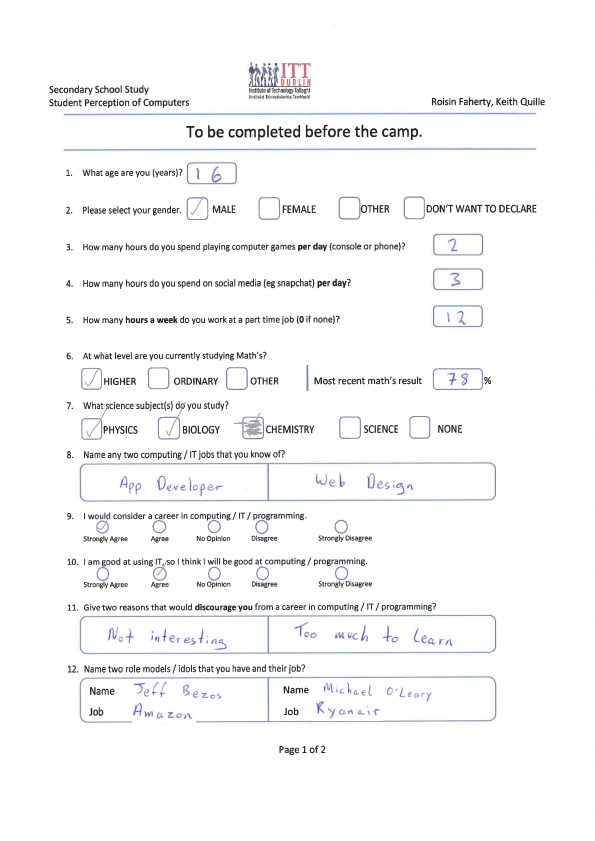 ITT
DUBLIN
Institute of Technology Tallaght
Secondary School Study
Student Perception of Computers
Roisin Faherty, Keith Quille
To be completed before the camp.
1. What age are you (years)? 16
2. Please select your gender. MALE FEMALE OTHER DON'T WANT TO DECLARE
3. How many hours do you spend playing computer games per day (console or phone)? 2
4. How many hours do you spend on social media (eg snapchat) per day? 3
5. How many hours a week do you work at a part time job (0 if none)? 12
6. At what level are you currently studying Math's?
HIGHER ORDINARY OTHER Most recent math's result 78 %
7. What science subject(s) do you study?
PHYSICS BIOLOGY CHEMISTRY SCIENCE NONE
8. Name any two computing / IT jobs that you know of?
App Developer Web Design
9. I would consider a career in computing / IT / programming.
Strongly Agree Agree No Opinion Disagree Strongly Disagree
10. I am good at using IT, so I think I will be good at computing / programming.
Strongly Agree Agree No Opinion Disagree Strongly Disagree
11. Give two reasons that would discourage you from a career in computing / IT / programming?
Not interesting Too much to learn
12. Name two role models / idols that you have and their job?
Name Jeff Bezos Name Michael O'Leary
Job Amazon Job Ryanair
Page 1 of 2